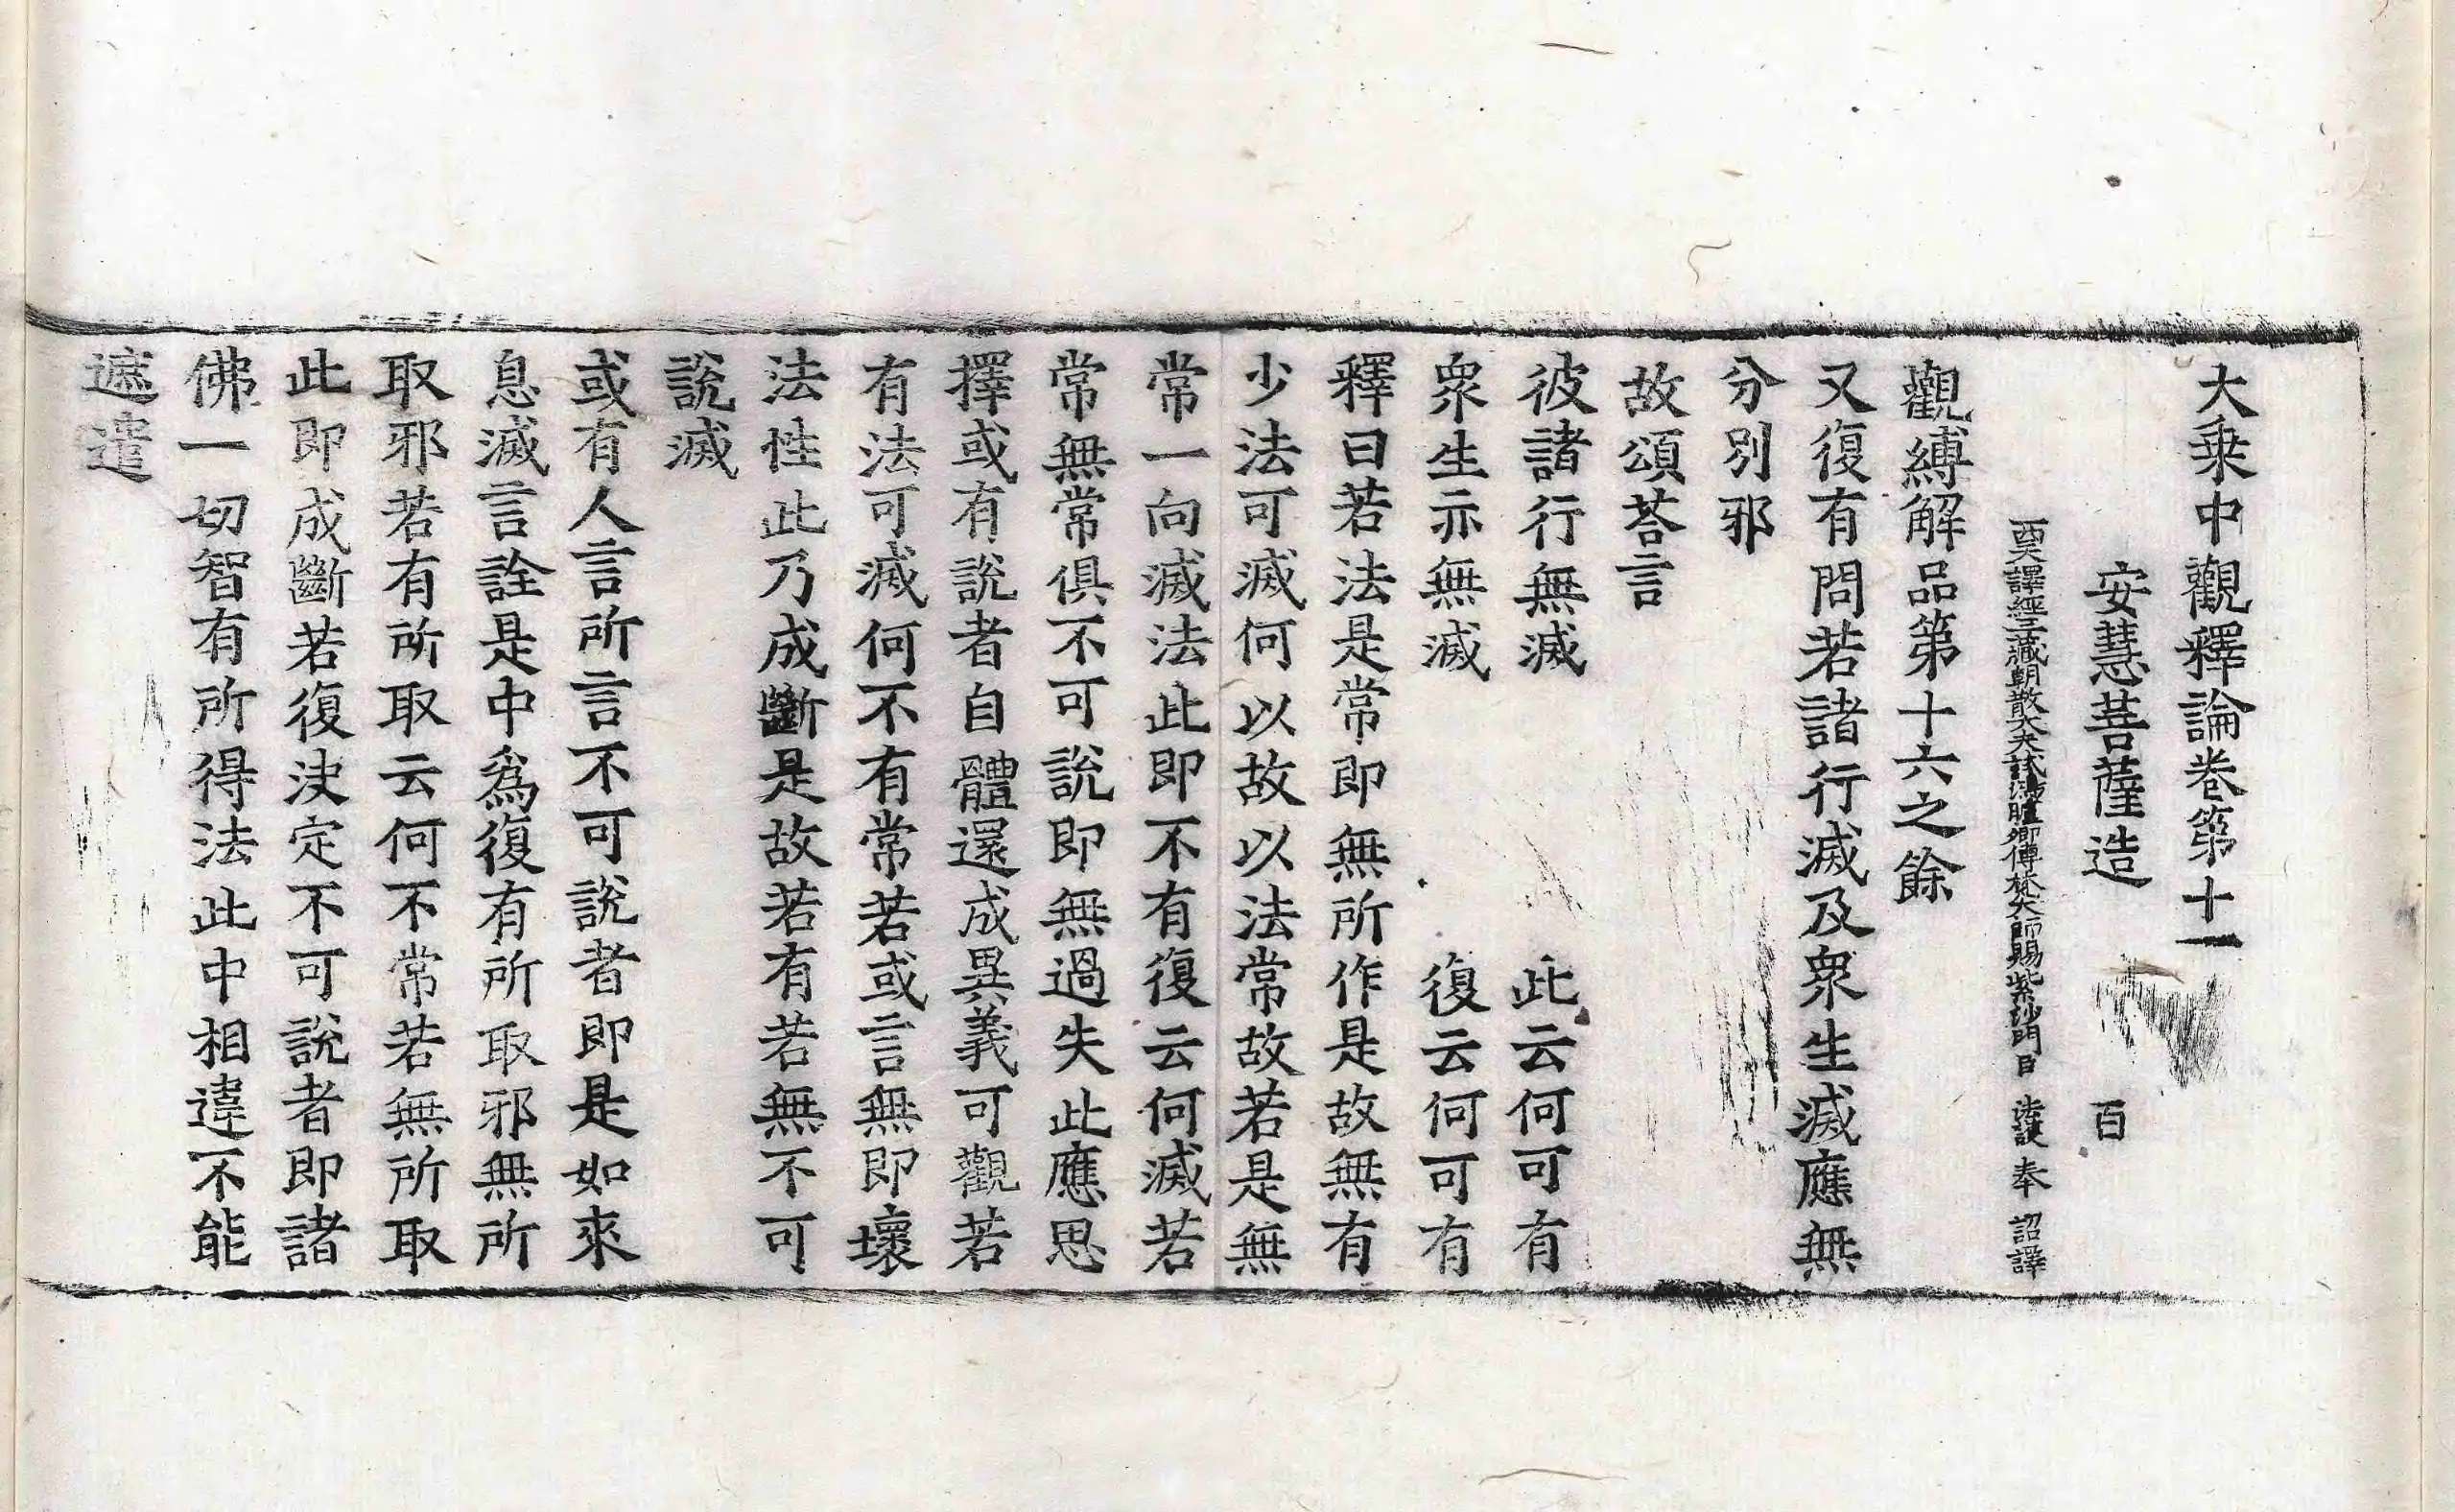 大乗中觀釋論卷第十一
安慧菩薩造　百
譯經三藏朝散大夫試鴻臚卿傳梵大師賜紫沙門臣　法護　奉　詔譯
觀縛解品第十六之餘
又復有問若諸行滅及衆生滅應無
分別邪
故頌荅言
彼諸行無滅　此云何可有
衆生亦無滅　復云何可有
釋曰若法是常即無所作是故無有
少法可滅何以故以法常故若是無
常一向滅法此即不有復云何滅若
常無常俱不可說即無過失此應思
擇或有說者自體還成異義可觀若
有法可滅何不有常若或言無即壞
法性此乃成斷是故若有若無不可
說滅
或有人言所言不可說者即是如來
息滅言詮是中爲復有所取邪無所
取邪若有所取云何不常若無所取
此即成斷若復決定不可說者即諸
佛一切智有所得法此中相違不能
遮遣